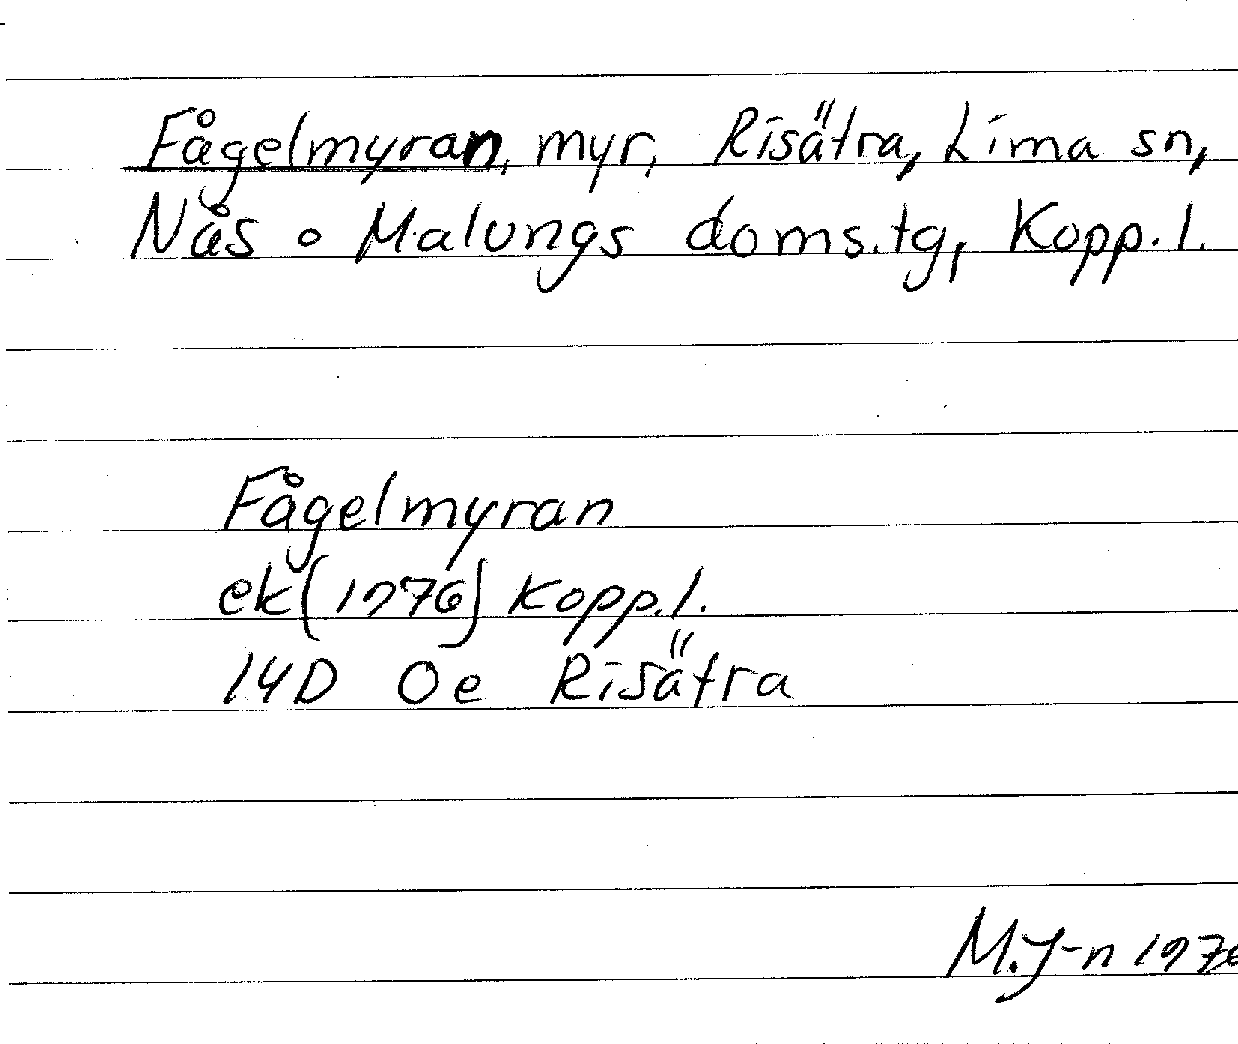 Fågelmyran, myr, Risätra, Lima sn,
Nås o Malungs doms.tg, Kopp.l.
Fågelmyran
ek (1976) Kopp.l.
14D 0e Risätra
M.J-n 1976